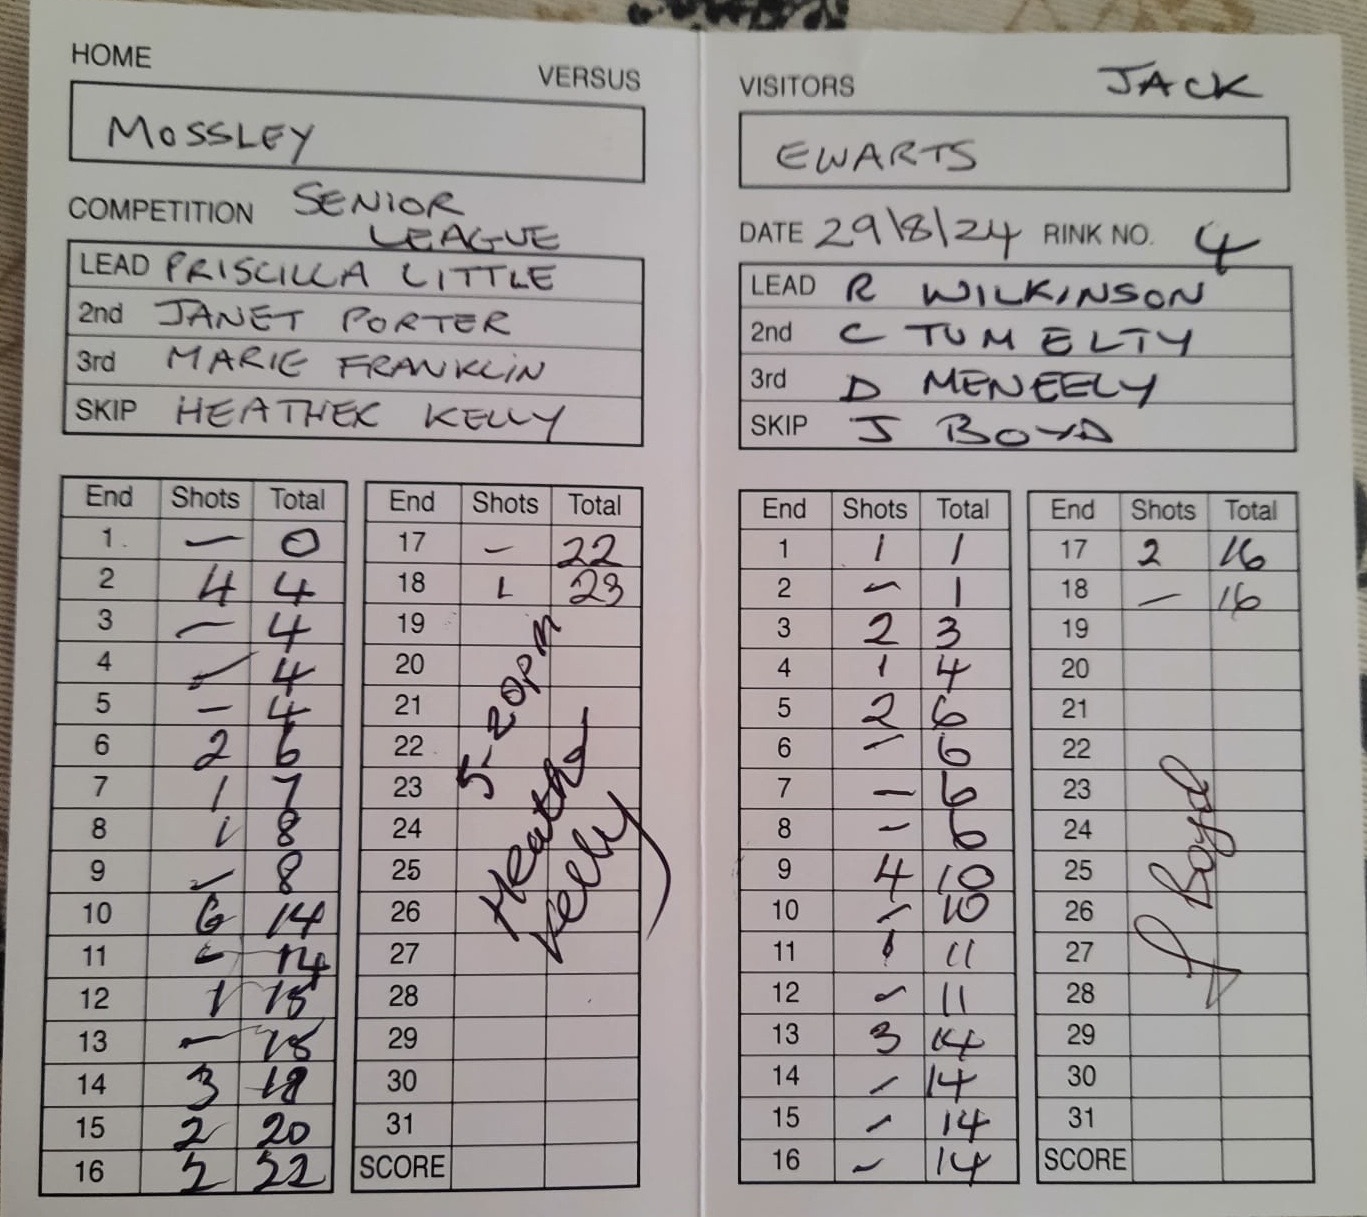 HOME VERSUS
MOSSLEY
COMPETITION SENIOR
LEAGUE
LEAD PRISCILLA LITTLE
2nd JANET PORTER
3rd MARIE FRANKLIN
SKIP HEATHER KELLY
End Shots Total
1 — 0
2 4 4
3 — 4
4 — 4
5 — 4
6 2 6
7 1 7
8 1 8
9 — 8
10 6 14
11 — 14
12 1 15
13 — 15
14 3 18
15 2 20
16 2 22
End Shots Total
17 — 22
18 1 23
19
20
21
22
23
24
25
26
27
28
29
30
31
SCORE
5-20pm
Heather
Kelly
VISITORS JACK
EWARTS
DATE 29\8\24 RINK NO. 4
LEAD R WILKINSON
2nd C TUMELTY
3rd D MENEELY
SKIP J BOYD
End Shots Total
1 1 1
2 — 1
3 2 3
4 1 4
5 2 6
6 — 6
7 — 6
8 — 6
9 4 10
10 — 10
11 1 11
12 — 11
13 3 14
14 — 14
15 — 14
16 — 14
End Shots Total
17 2 16
18 — 16
19
20
21
22
23
24
25
26
27
28
29
30
31
SCORE
J Boyd